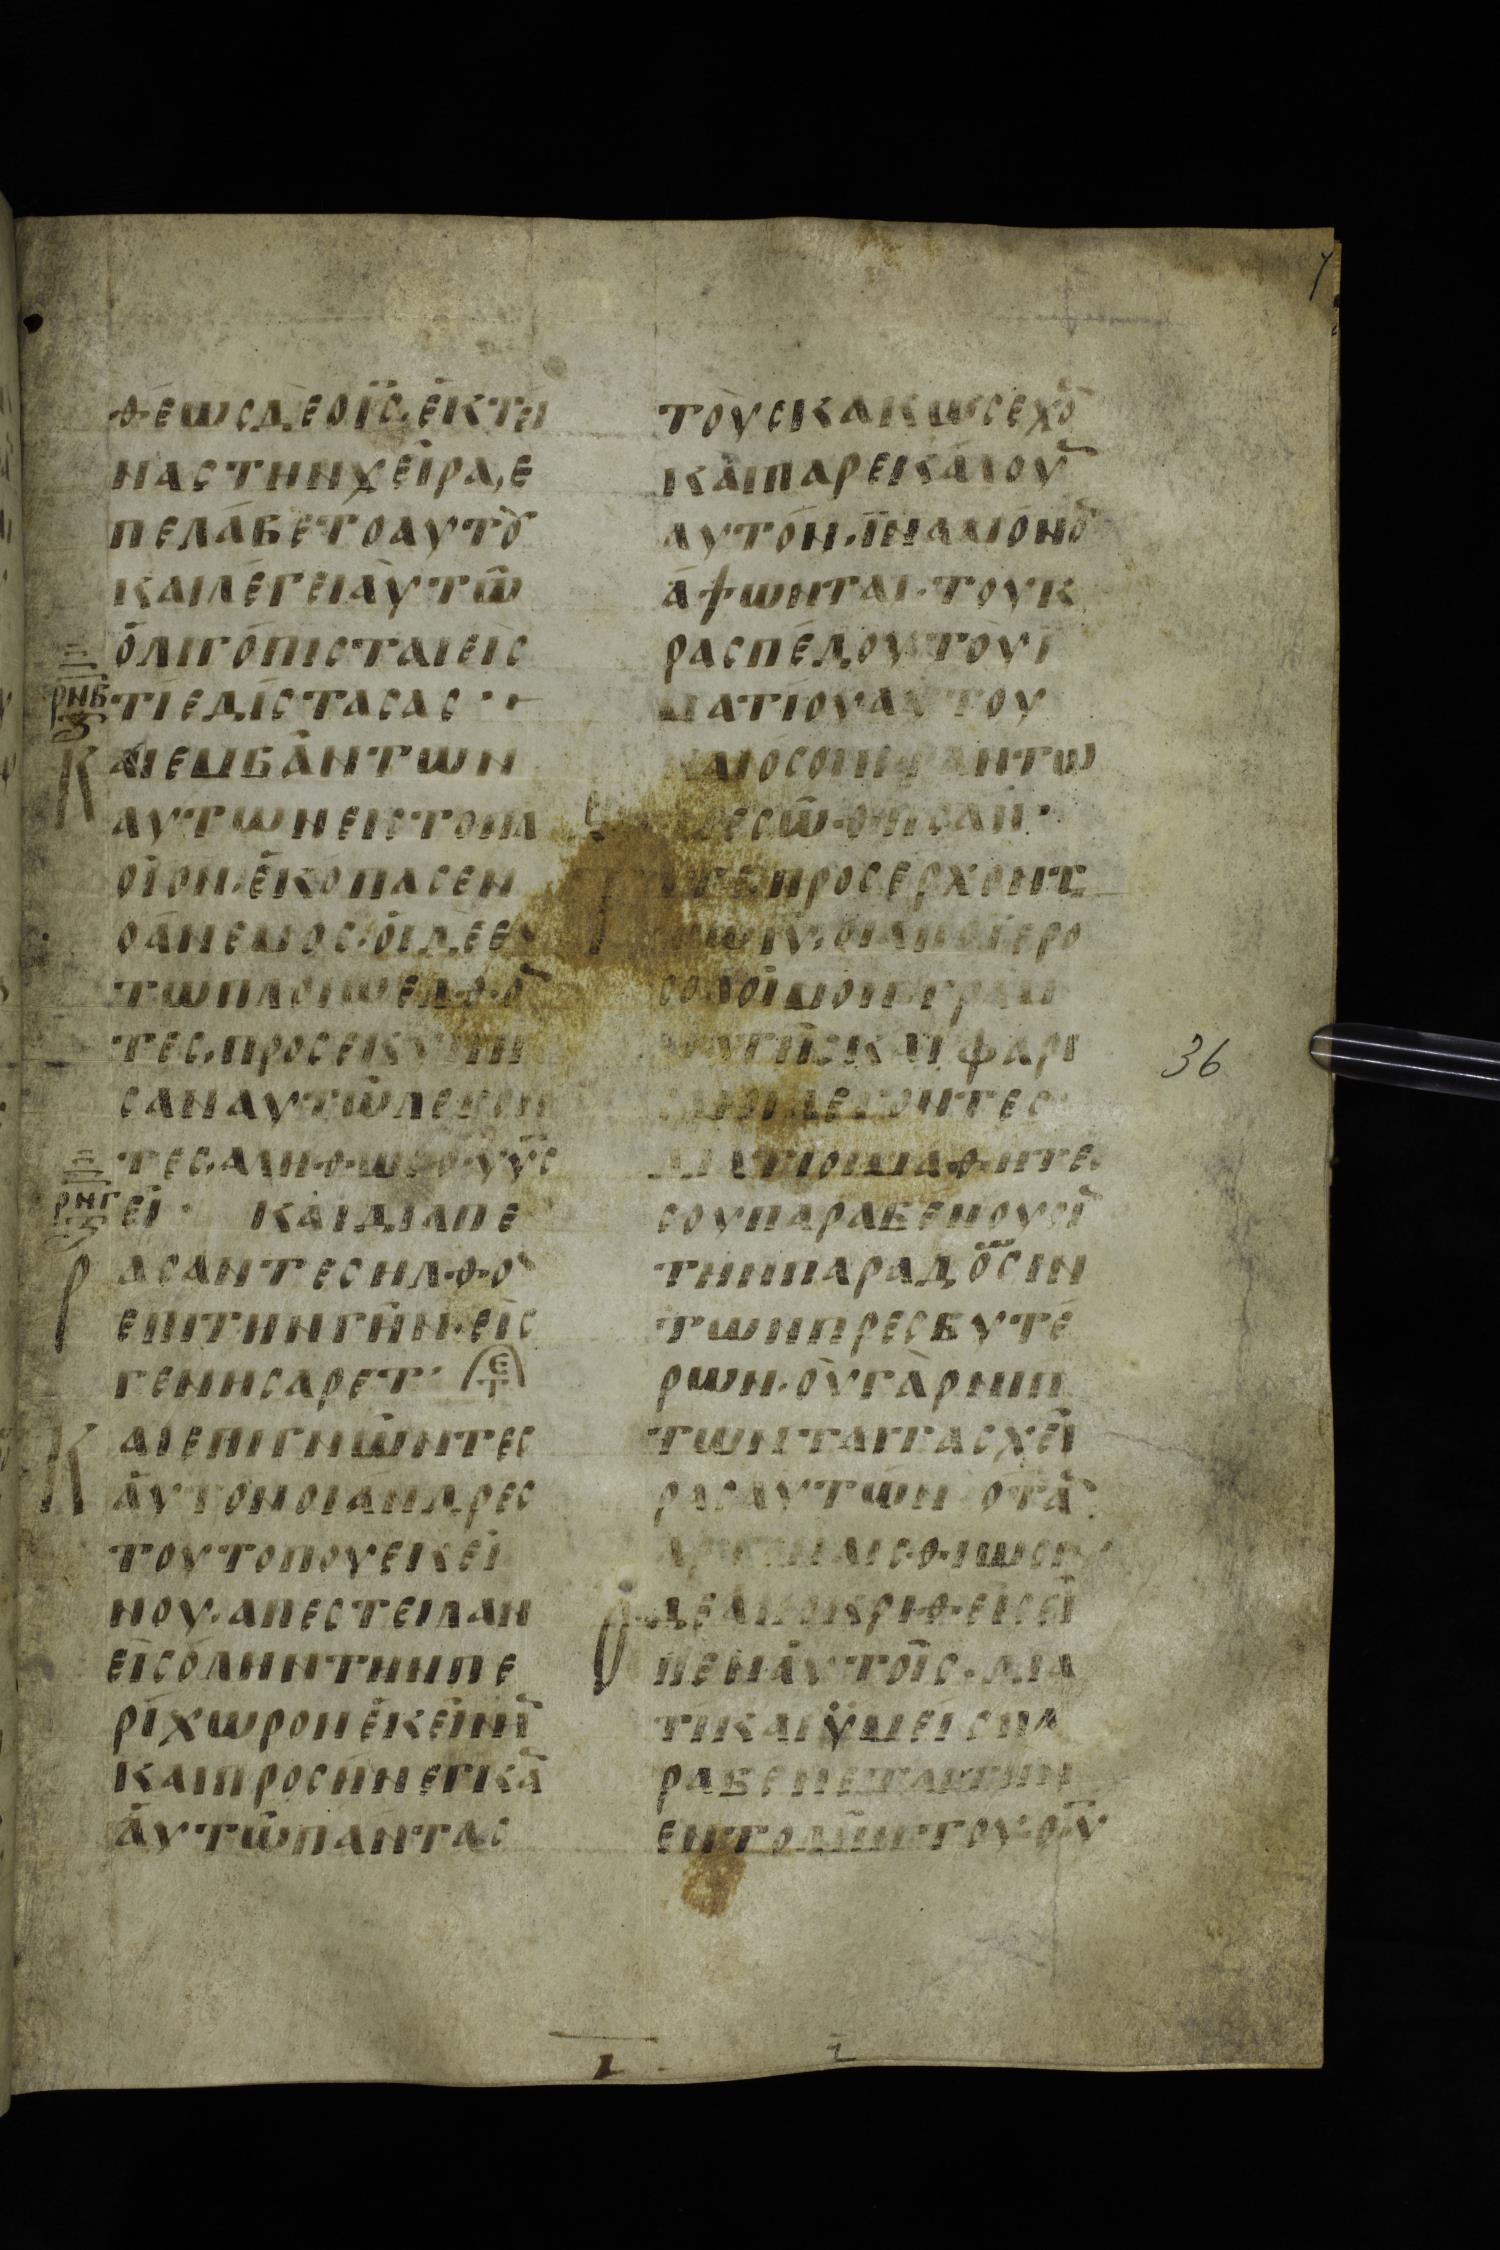 θέωσδεοι̅ς̅·ἐκτεί
ναςτηνχεῖρα,ε
πελάβετοαυτου
καιλέγειαὐτῶ
ὀλιγόπισταιεἰς
τίεδίστασας·
ρνβ
ς
Καιεμβάντων
αυτωνειςτοπλ
οῖον·ἐκόπασεν
οάνεμος·οἱδεε̅
τωπλοιωελθο̅
τες·προσεκύνη
σαναυτῶλεγον
τες·αληθωςθ̅υ̅υ̅ς̅
ρνγ
ς
εῖ· Καὶδιαπε
ρασαντεςηλθο̅
επιτηνγῆν·εἰς
γεννσαρετ· ΤΕ
Καιεπιγνῶντες
αὐτονοιάνδρες
τουτοπουεκεί
νου·απεστειλαν
εἰςόληντηνπε
ρίχωρονἐκείνη̅
καιπροσήνεγκα̅
αὐτῶπάντας
τοὺςκακωςεχο̅
καὶπαρεκάλου̅
αυτόν·ἵναμόνο̅
ἅψωνται·τουκ
ρασπέδουτοῦἱ
ματίουαυτου
καιοσοιηψαντω
διεσώθησαν·
Τότεπροσέρχοντ
τωι̅υ̅·οιαποϊερο
σολοίμονγραμ
ματῆςκαὶφαρι
σαιοιλεγοντες·
διατίοιμαθητέ
σουπαραβενουσι̅
τηνπαράδοσιν
τωνπρεσβυτέ
ρων·οὐγὰρνιπ
τωνταιταςχεῖ
ραςαυτῶν οτα̅
Οδεαποκριθειςεἶ
πεναὐτοῖς·δια
τίκαιϋμείςπα
ραβενεταιτην
εντολὴντουθ̅υ̅
36